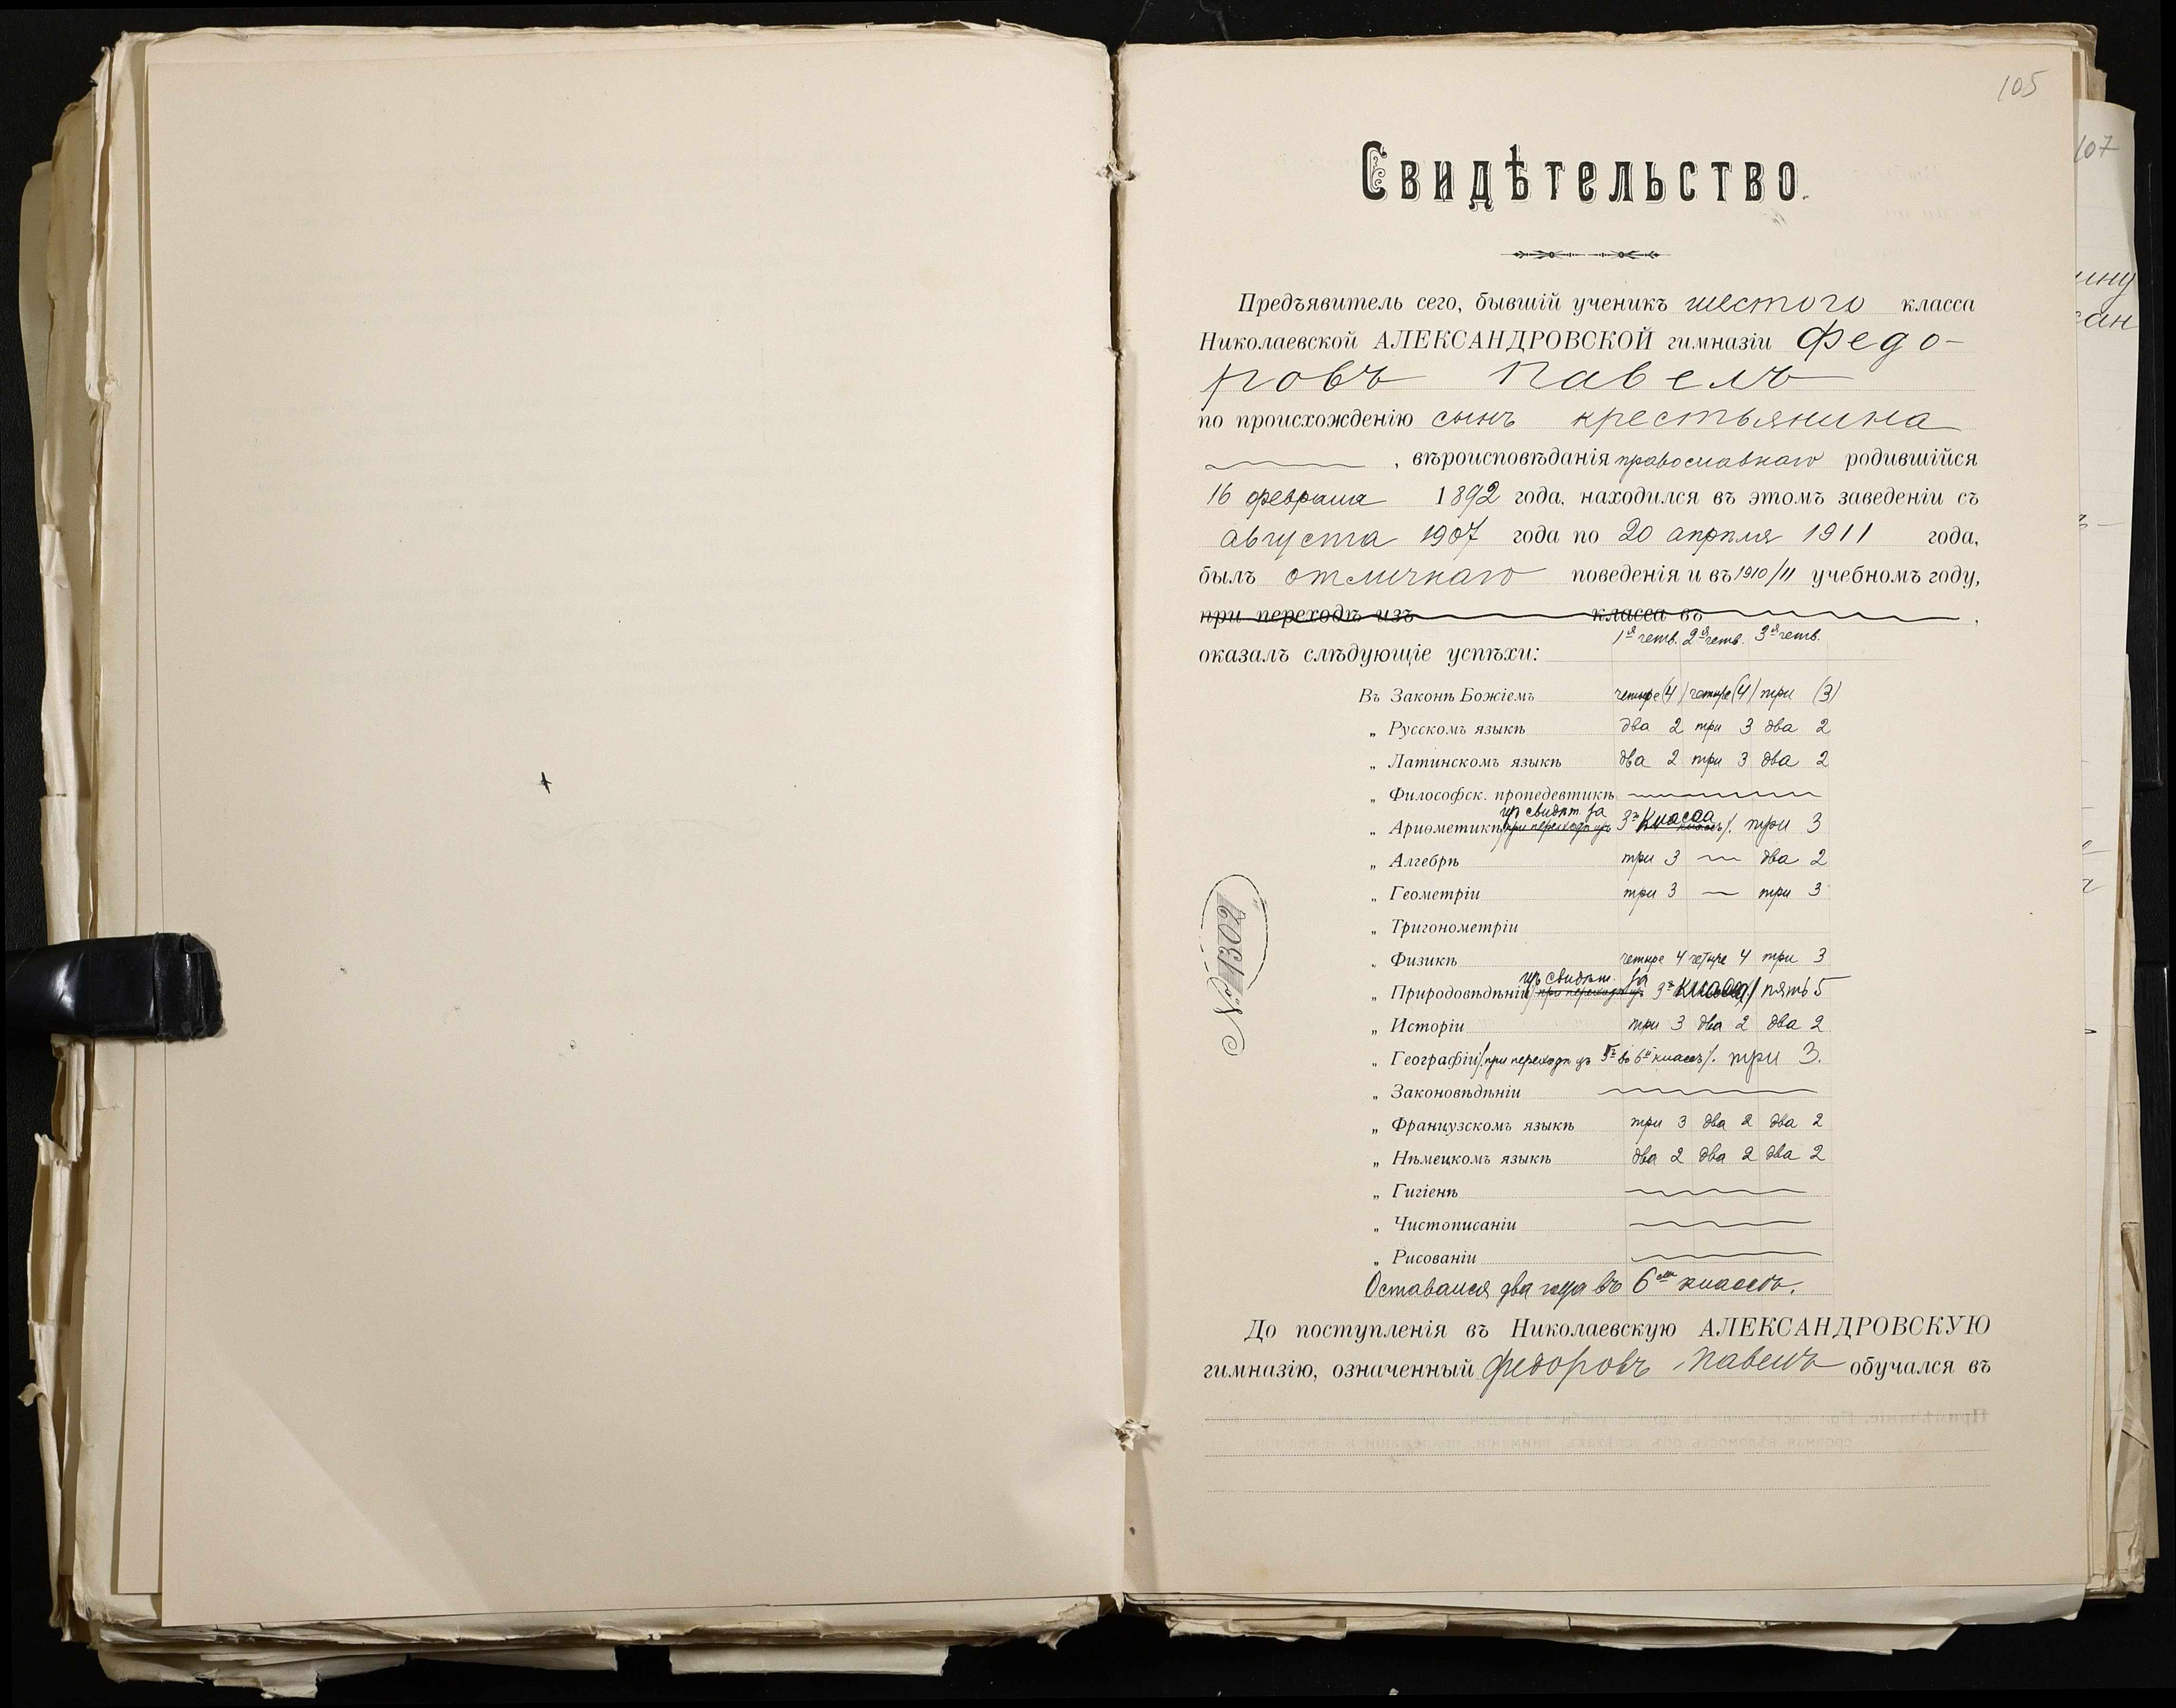 105
107
Свидѣтельство.
Предъявитель сего, бывшій ученикъ шестого класса
Николаевской АЛЕКСАНДРОВСКОЙ гимназіи Федо-
ровъ Павелъ
по происхожденію сынъ крестьянина
, вѣроисповѣданія православнаго родившійся
16 февраля 1892 года, находился въ этомъ заведеніи съ
августа 1907 года по 20 апрѣля 1911 года,
былъ отличнаго поведенія и въ 1910/11 учебномъ году,
при переходѣ изъ класса въ ,
1я четв. 2я четв. 3я четв.
оказалъ слѣдующіе успѣхи:
Въ Законѣ Божіемъ четыре (4) четыре (4) три (3)
„ Русскомъ языкѣ два 2 три 3 два 2
„ Латинскомъ языкѣ два 2 три 3 два 2
„ Философск. пропедевтикѣ
изъ свидѣт. за
„ Ариѳметикѣ /при переходѣ изъ 3го класса/. три 3
„ Алгебрѣ три 3 — два 2
„ Геометріи три 3 — три 3
„ Тригонометріи
„ Физикѣ четыре 4 четыре 4 три 3
изъ свидѣт. за
„ Природовѣдѣніи /при переходѣ изъ 3го класса/ пять 5
„ Исторіи три 3 два 2 два 2
„ Географіи /при переходѣ изъ 5го въ 6й классъ/. три 3.
„ Законовѣдѣніи
„ Французскомъ языкѣ три 3 два 2 два 2
„ Нѣмецкомъ языкѣ два 2 два 2 два 2
„ Гигіенѣ
„ Чистописаніи
„ Рисованіи
Оставался два года въ 6омъ классѣ.
№ 1302
До поступленія въ Николаевскую АЛЕКСАНДРОВСКУЮ
гимназію, означенный Федоровъ Павелъ обучался въ